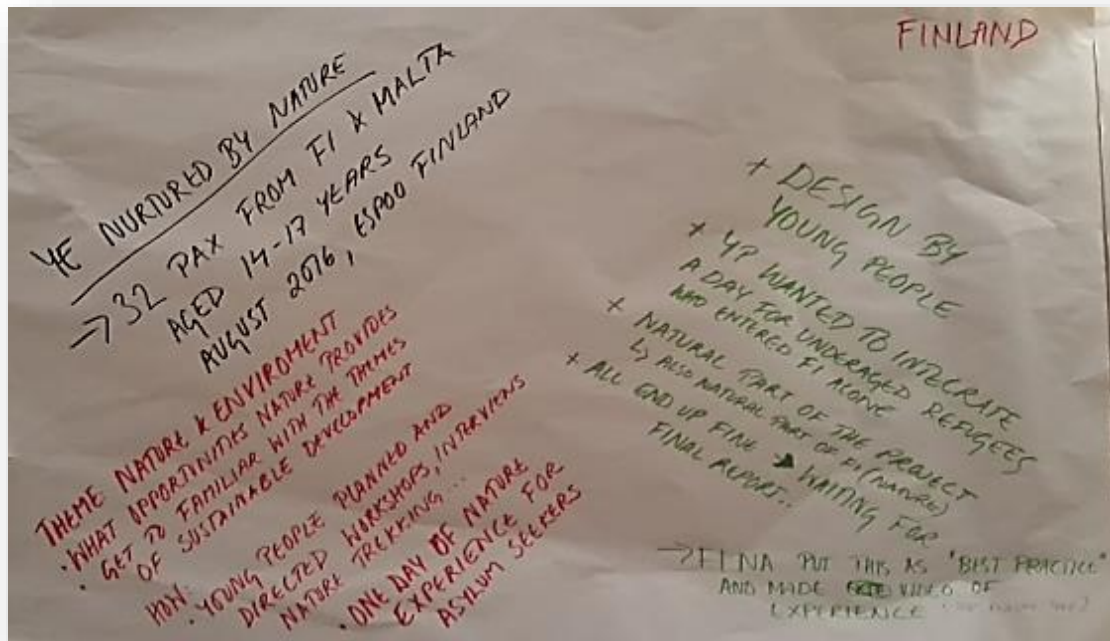 FINLAND
YE NURTURED BY NATURE
→ 32 PAX FROM FI & MALTA
AGED 14-17 YEARS
AUGUST 2016, ESPOO FINLAND
THEME NATURE & ENVIROMENT
· WHAT OPPORTUNITIES NATURE PROVIDES
· GET TO FAMILIAR WITH THE THEMES
OF SUSTAINABLE DEVELOPMENT
HOW:
· YOUNG PEOPLE PLANNED AND
DIRECTED WORKSHOPS, INTERVIEWS
NATURE TREKKING...
· ONE DAY OF NATURE
EXPERIENCE FOR
ASYLUM SEEKERS
+ DESIGN BY
YOUNG PEOPLE
+ YP WANTED TO INTEGRATE
A DAY FOR UNDERAGED REFUGEES
WHO ENTERED FI ALONE
+ NATURAL PART OF THE PROJECT
↳ ALSO NATURAL PART OF FI (NATURE)
+ ALL END UP FINE → WAITING FOR
FINAL REPORT..
→ FI NA PUT THIS AS "BEST PRACTICE"
AND MADE VIDEO OF
EXPERIENCE